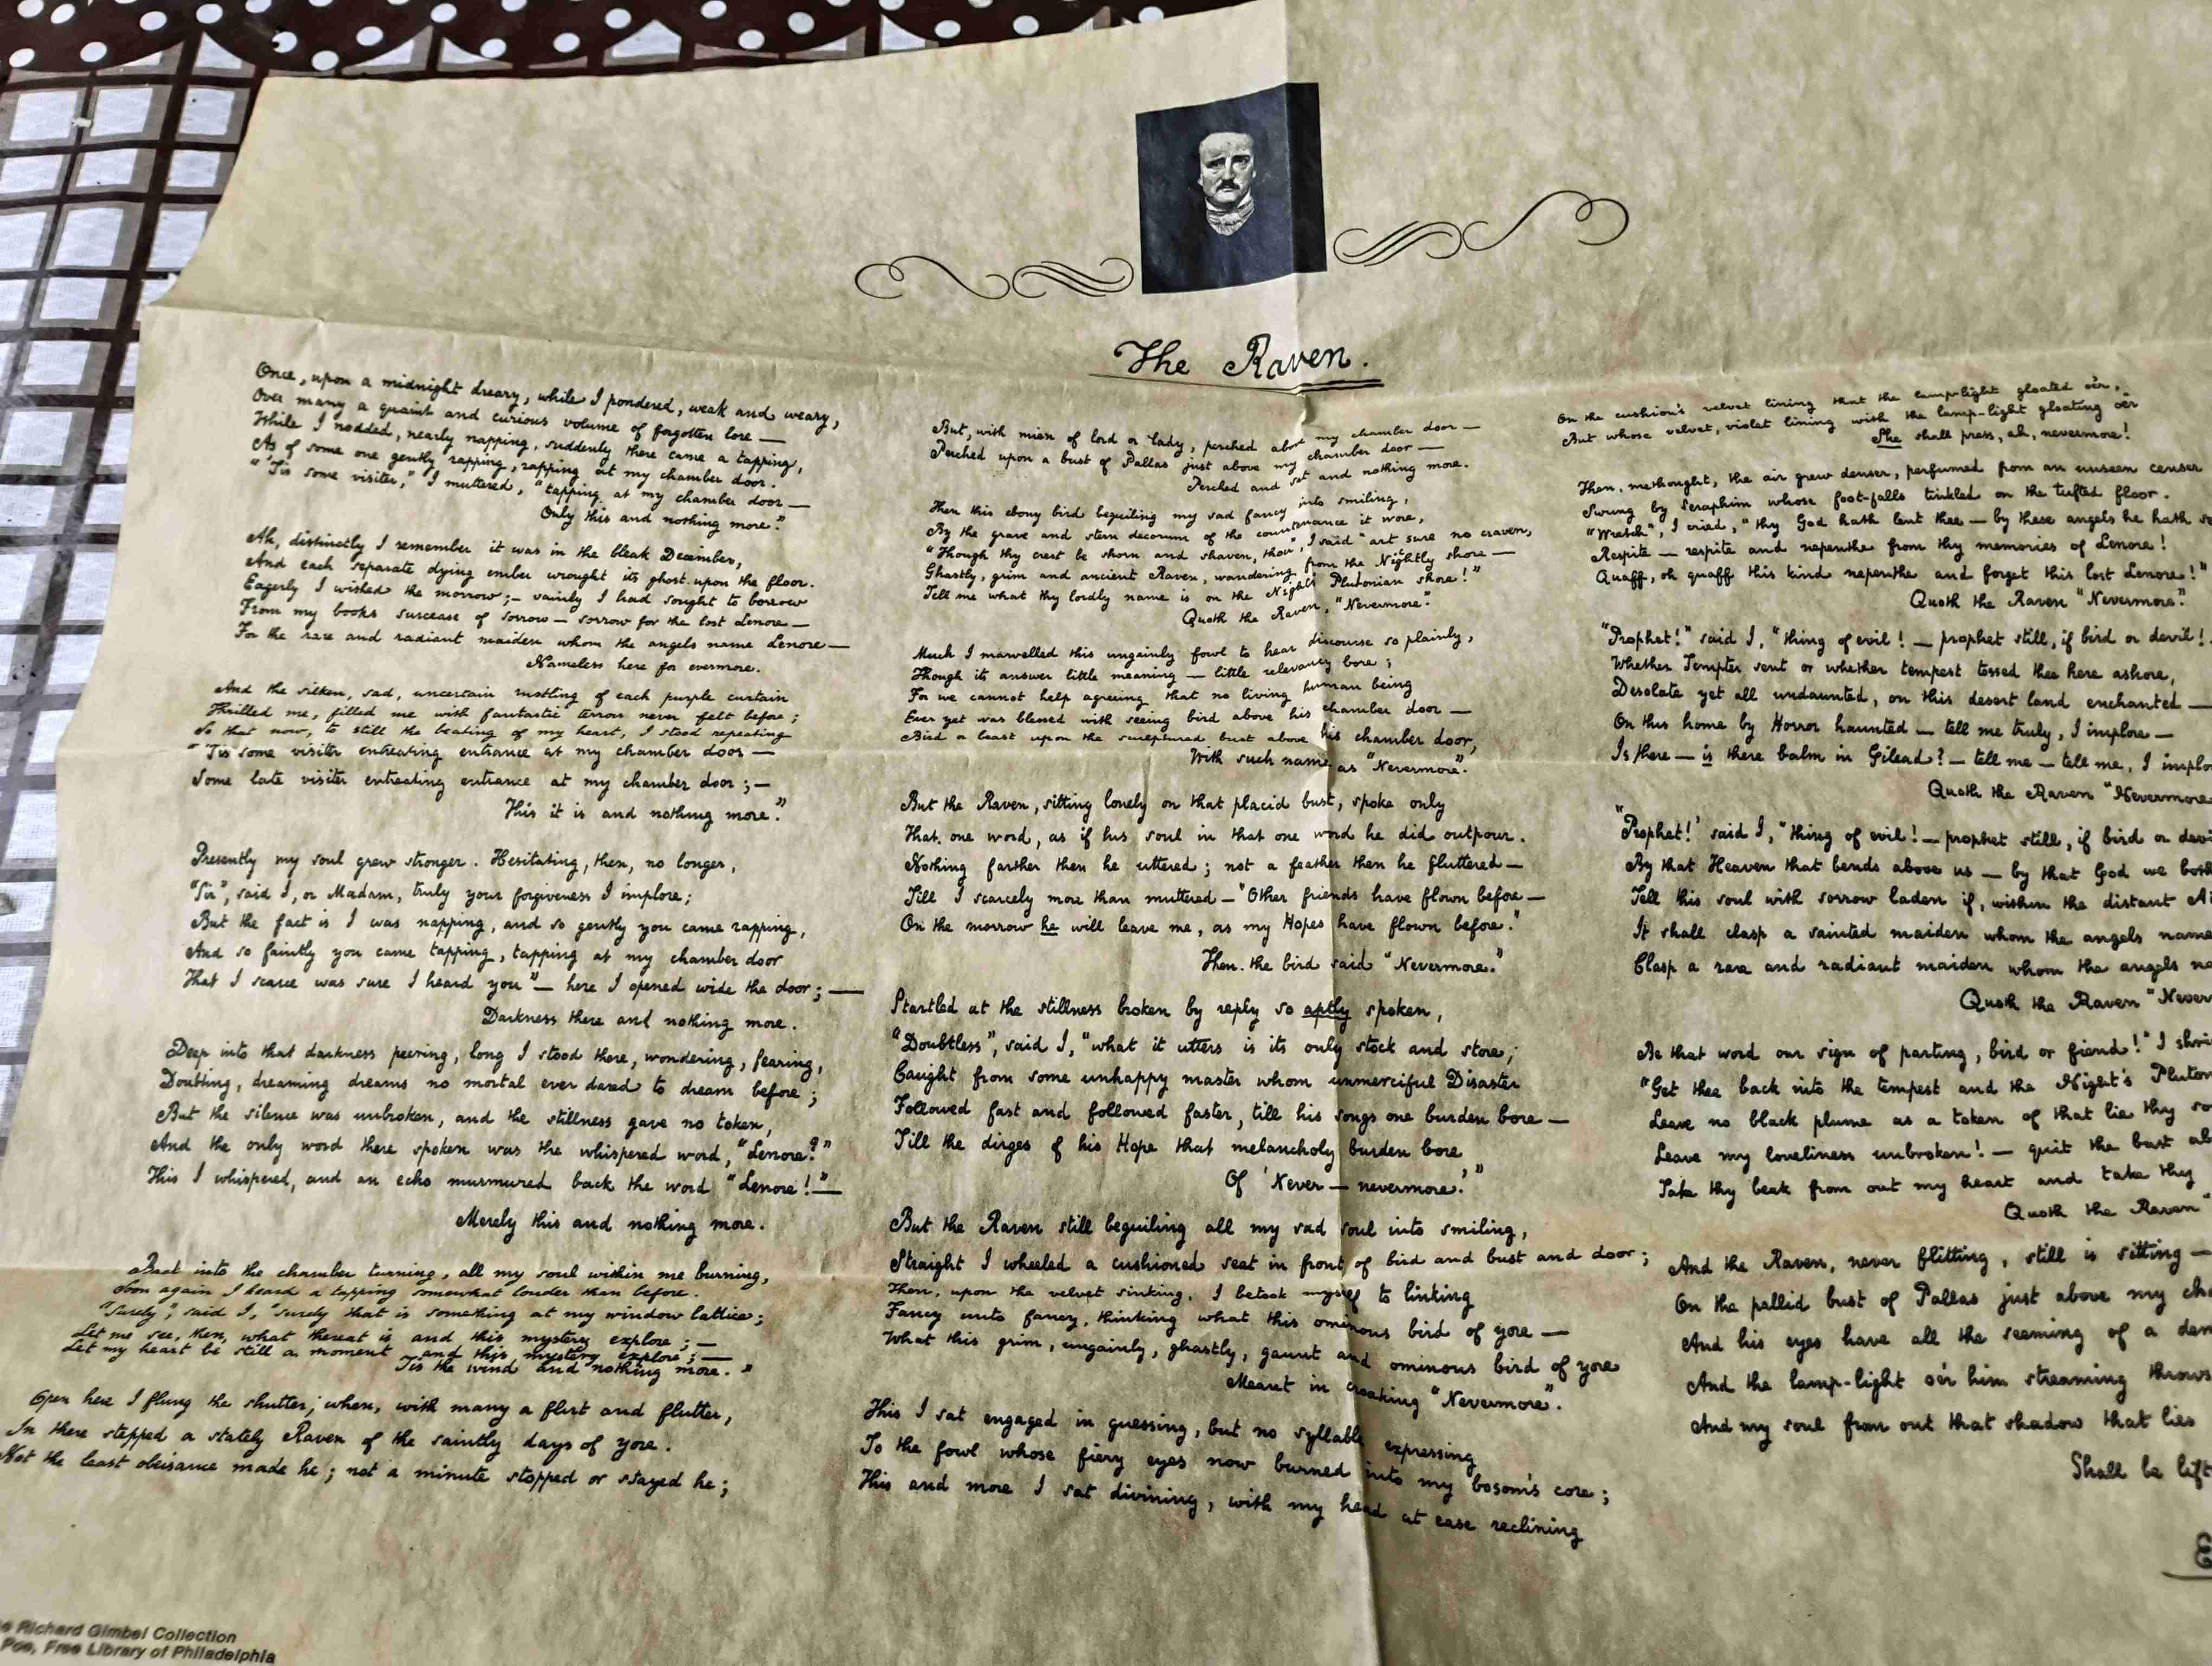 The Raven.
Once, upon a midnight dreary, while I pondered, weak and weary,
Over many a quaint and curious volume of forgotten lore —
While I nodded, nearly napping, suddenly there came a tapping,
As of some one gently rapping, rapping at my chamber door.
"'Tis some visiter," I muttered, "tapping at my chamber door —
Only this and nothing more."
Ah, distinctly I remember it was in the bleak December,
And each separate dying ember wrought its ghost upon the floor.
Eagerly I wished the morrow; — vainly I had sought to borrow
From my books surcease of sorrow — sorrow for the lost Lenore —
For the rare and radiant maiden whom the angels name Lenore —
Nameless here for evermore.
And the silken, sad, uncertain rustling of each purple curtain
Thrilled me, filled me with fantastic terrors never felt before;
So that now, to still the beating of my heart, I stood repeating
"'Tis some visiter entreating entrance at my chamber door —
Some late visiter entreating entrance at my chamber door; —
This it is and nothing more."
Presently my soul grew stronger. Hesitating, then, no longer,
"Sir", said I, or Madam, truly your forgiveness I implore;
But the fact is I was napping, and so gently you came rapping,
And so faintly you came tapping, tapping at my chamber door
That I scarce was sure I heard you" — here I opened wide the door; —
Darkness there and nothing more.
Deep into that darkness peering, long I stood there, wondering, fearing,
Doubting, dreaming dreams no mortal ever dared to dream before;
But the silence was unbroken, and the stillness gave no token,
And the only word there spoken was the whispered word, "Lenore?"
This I whispered, and an echo murmured back the word "Lenore!" —
Merely this and nothing more.
Back into the chamber turning, all my soul within me burning,
Soon again I heard a tapping somewhat louder than before.
"Surely", said I, "surely that is something at my window lattice;
Let me see, then, what thereat is and this mystery explore; —
Let my heart be still a moment and this mystery explore; —
'Tis the wind and nothing more."
Open here I flung the shutter; when, with many a flirt and flutter,
In there stepped a stately Raven of the saintly days of yore.
Not the least obeisance made he; not a minute stopped or stayed he;
But, with mien of lord or lady, perched above my chamber door —
Perched upon a bust of Pallas just above my chamber door —
Perched and sat and nothing more.
Then this ebony bird beguiling my sad fancy into smiling,
By the grave and stern decorum of the countenance it wore,
"Though thy crest be shorn and shaven, thou", I said "art sure no craven,
Ghastly, grim and ancient Raven, wandering from the Nightly shore —
Tell me what thy lordly name is on the Night's Plutonian shore!"
Quoth the Raven, "Nevermore".
Much I marvelled this ungainly fowl to hear discourse so plainly,
Though its answer little meaning — little relevancy bore;
For we cannot help agreeing that no living human being
Ever yet was blessed with seeing bird above his chamber door —
Bird or beast upon the sculptured bust above his chamber door,
With such name as "Nevermore".
But the Raven, sitting lonely on that placid bust, spoke only
That one word, as if his soul in that one word he did outpour.
Nothing farther then he uttered; not a feather then he fluttered —
Till I scarcely more than muttered — "Other friends have flown before —
On the morrow he will leave me, as my Hopes have flown before."
Then the bird said "Nevermore."
Startled at the stillness broken by reply so aptly spoken,
"Doubtless", said I, "what it utters is its only stock and store;
Caught from some unhappy master whom unmerciful Disaster
Followed fast and followed faster, till his songs one burden bore —
Till the dirges of his Hope that melancholy burden bore
Of 'Never — nevermore.'"
But the Raven still beguiling all my sad soul into smiling,
Straight I wheeled a cushioned seat in front of bird and bust and door;
Then, upon the velvet sinking, I betook myself to linking
Fancy unto fancy, thinking what this ominous bird of yore —
What this grim, ungainly, ghastly, gaunt and ominous bird of yore
Meant in croaking "Nevermore".
This I sat engaged in guessing, but no syllable expressing
To the fowl whose fiery eyes now burned into my bosom's core;
This and more I sat divining, with my head at ease reclining
On the cushion's velvet lining that the lamp-light gloated o'er,
But whose velvet, violet lining with the lamp-light gloating o'er
She shall press, ah, nevermore!
Then, methought, the air grew denser, perfumed from an unseen censer
Swung by Seraphim whose foot-falls tinkled on the tufted floor.
"Wretch", I cried, "thy God hath lent thee — by these angels he hath
Respite — respite and nepenthe from thy memories of Lenore!
Quaff, oh quaff this kind nepenthe and forget this lost Lenore!"
Quoth the Raven "Nevermore".
"Prophet!" said I, "thing of evil! — prophet still, if bird or devil!
Whether Tempter sent or whether tempest tossed thee here ashore,
Desolate yet all undaunted, on this desert land enchanted —
On this home by Horror haunted — tell me truly, I implore —
Is there — is there balm in Gilead? — tell me — tell me, I implo
Quoth the Raven "Nevermore
"Prophet!' said I, "thing of evil! — prophet still, if bird or devi
By that Heaven that bends above us — by that God we both
Tell this soul with sorrow laden if, within the distant Ai
It shall clasp a sainted maiden whom the angels name
Clasp a rare and radiant maiden whom the angels na
Quoth the Raven "Never
Be that word our sign of parting, bird or fiend!" I shri
"Get thee back into the tempest and the Night's Pluton
Leave no black plume as a token of that lie thy so
Leave my loneliness unbroken! — quit the bust ab
Take thy beak from out my heart and take thy
Quoth the Raven "
And the Raven, never flitting, still is sitting —
On the pallid bust of Pallas just above my cha
And his eyes have all the seeming of a dem
And the lamp-light o'er him streaming throws
And my soul from out that shadow that lies
Shall be lift
E
e Richard Gimbel Collection
Poe, Free Library of Philadelphia